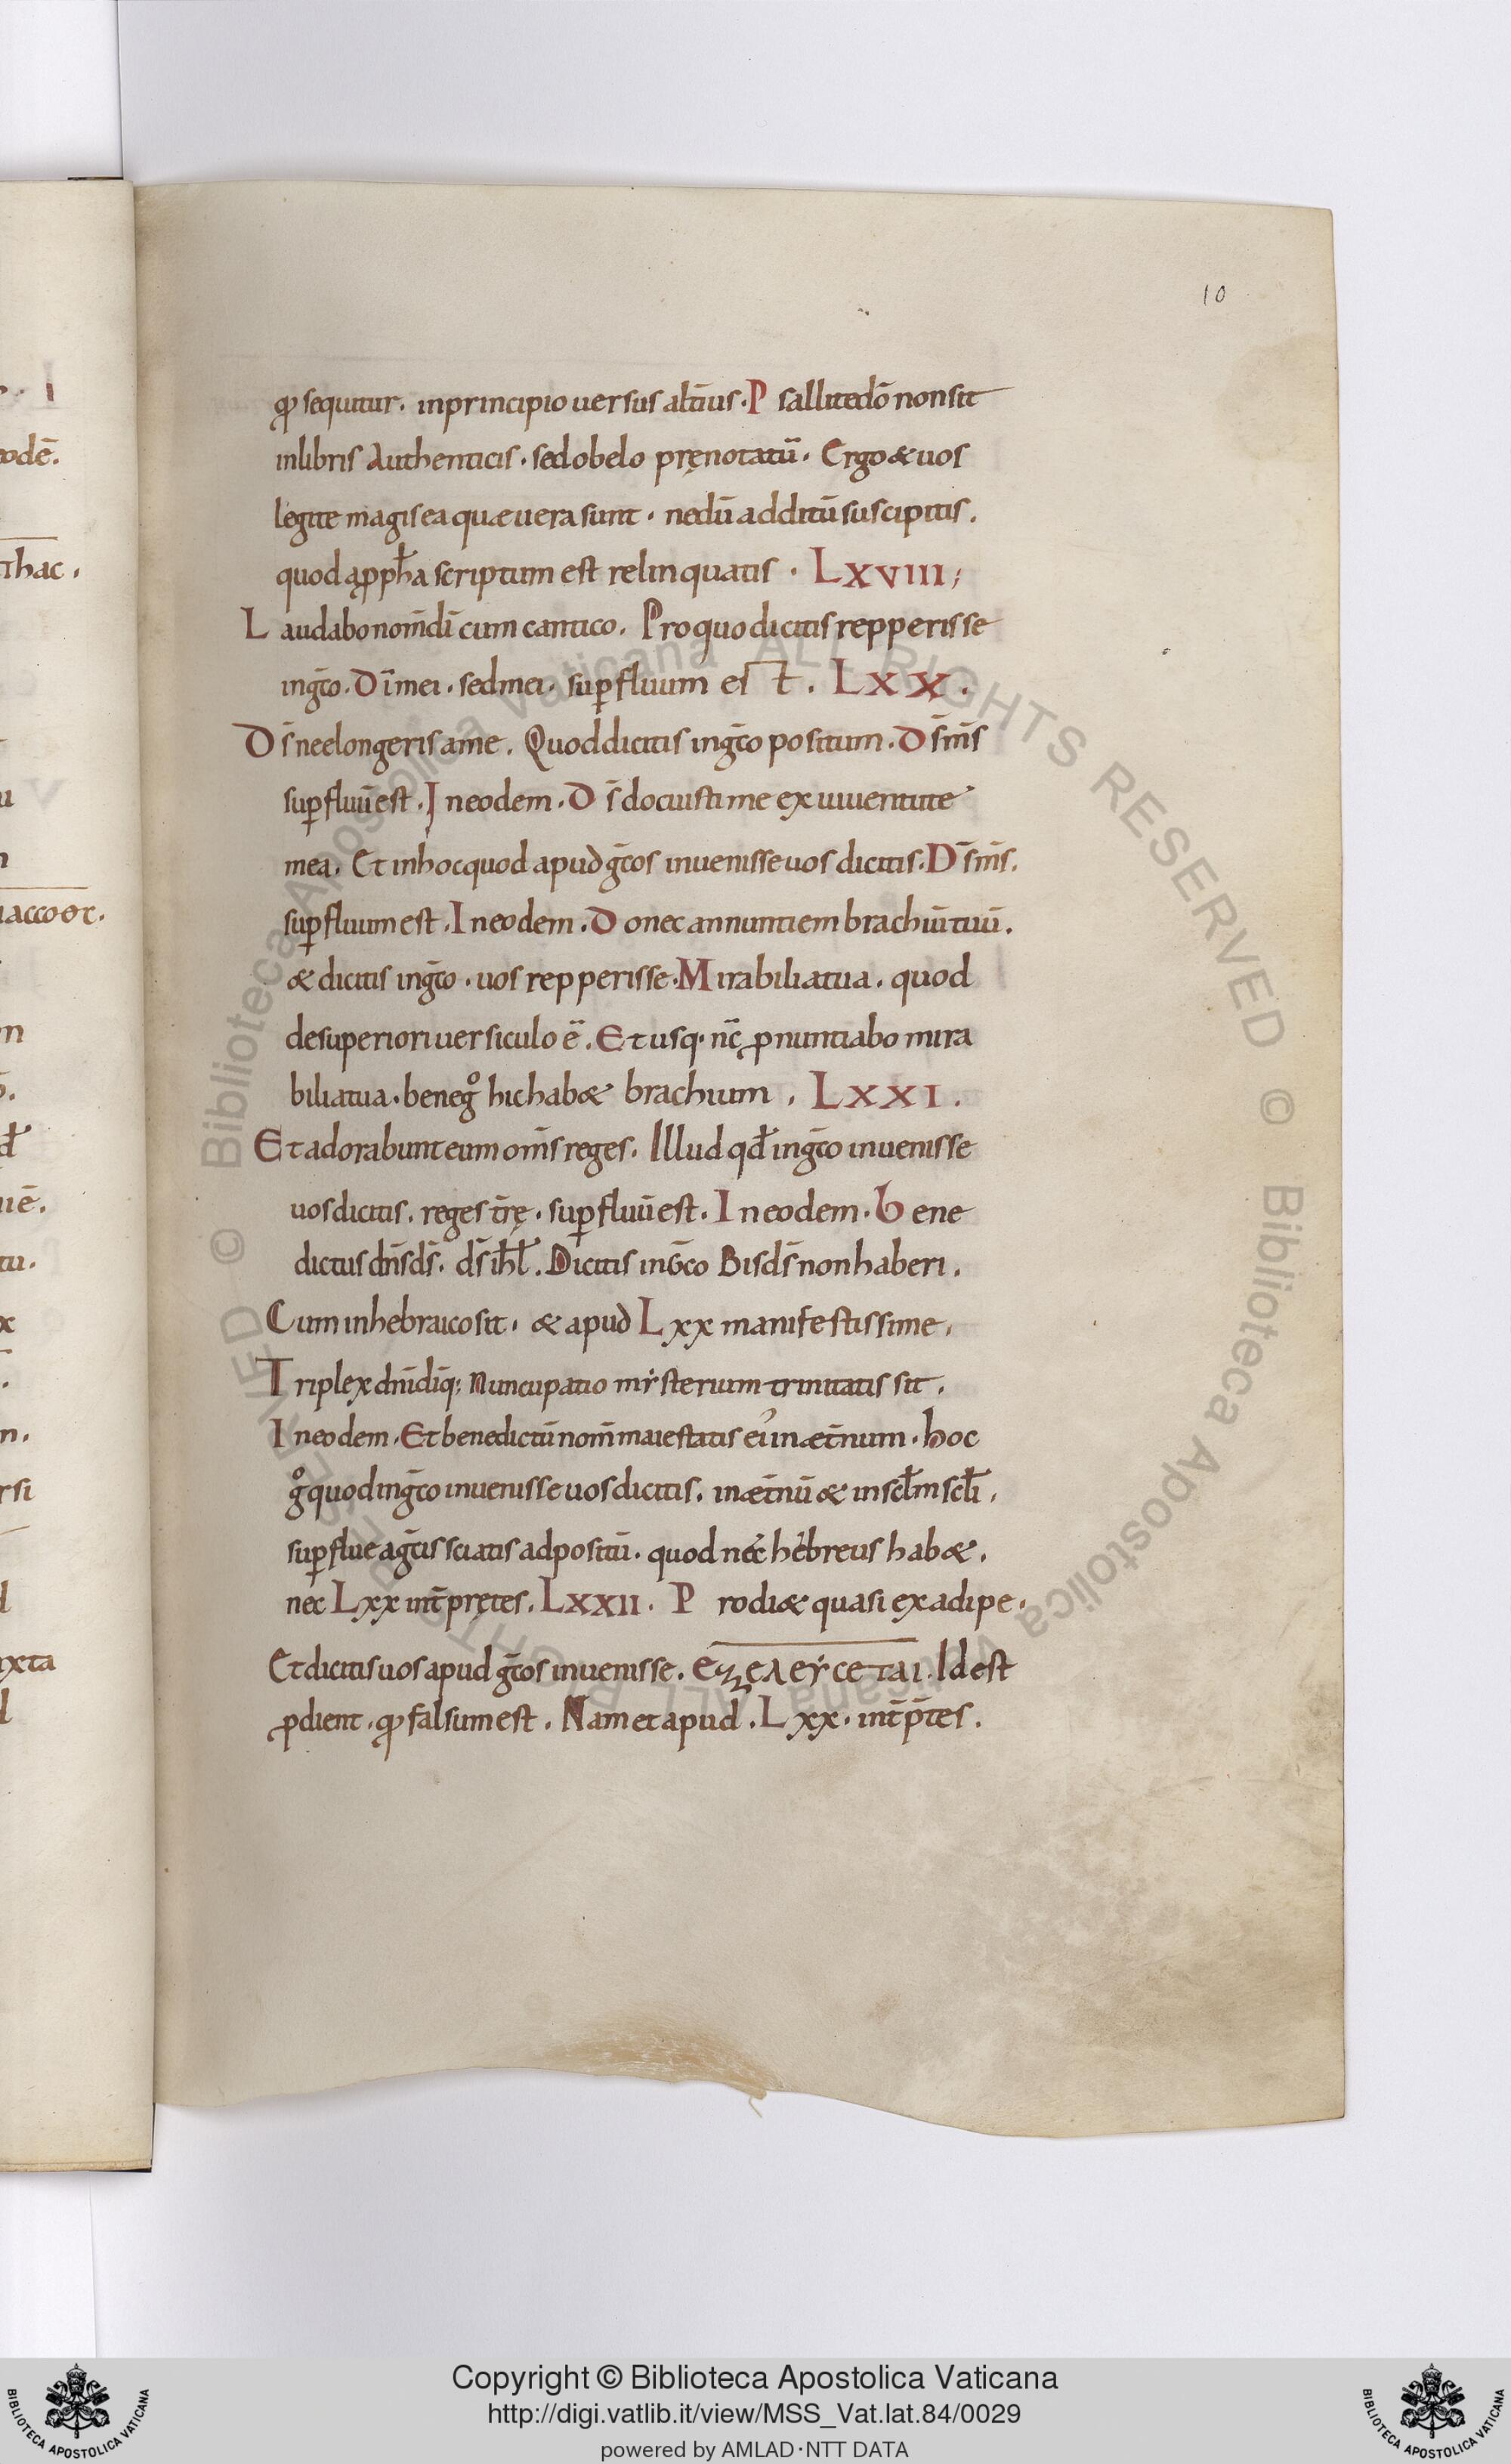 10
ꝙ sequitur. in principio uersus alt̄ius. Psallite dō non sit
in libris authenticis. sed obelo pręnotatū. Ergo & uos
legite magis ea quæ uera sunt. nedū additū suscipitis.
quod a ꝓph̄a scriptum est relinquatis. LXVIII;
Laudabo nom̄ dī cum cantico. Pro quo dicitis repperisse
in gc̄o. Dī mei. sed mei. suꝑfluum est. LXX.
Ds̄ ne elongeris a me. Quod dicitis in gc̄o positum. Ds̄ ms̄
suꝑfluū est. In eodem. Ds̄ docuisti me ex iuuentute
mea. Et in hoc quod apud gc̄os inuenisse uos dicitis. Ds̄ ms̄.
suꝑfluum est. In eodem. Donec annuntiem brachiū tuū.
& dicitis in gc̄o. uos repperisse. Mirabilia tua. quod
de superiori uersiculo ē. Et usq. nc̄ ꝓnuntiabo mira
bilia tua. bene gͦ hic hab& brachium. LXXI.
Et adorabunt eum om̄s reges. Illud qd̄ in gc̄o inuenisse
uos dicitis. reges tr̄ę. suꝑfluū est. In eodem. Bene
dictus dn̄s ds̄. ds̄ ihl̄. Dicitis in gc̄o Bis ds̄ non haberi.
Cum in hebraico sit. & apud Lxx manifestissime.
Triplex dn̄i dīq; Nuncupatio mẏsterium trinitatis sit.
In eodem. Et benedictū nom̄ maiestatis ei' in æt̄num. hoc
gͦ quod in gc̄o inuenisse uos dicitis. in æt̄nū & in scl̄m scl̄i.
suꝑflue a gc̄is sciatis adpositū. quod nec hebreus hab&.
nec Lxx int̄prętes. LXXII. Prodi& quasi ex adipe.
Et dicitis uos apud gc̄os inuenisse. eξελεύcεται. Id est
ꝓdient. ꝙ falsum est. Nam et apud. Lxx. int̄p̄tes.
Copyright © Biblioteca Apostolica Vaticana
http://digi.vatlib.it/view/MSS_Vat.lat.84/0029
powered by AMLAD·NTT DATA